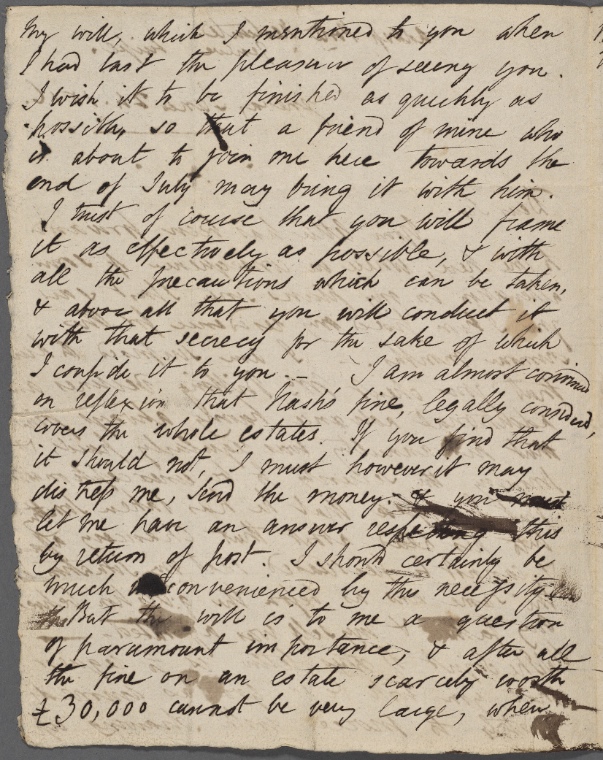 my will, which I mentioned to you when
I had last the pleasure of seeing you.
I wish it to be finished as quickly as
possible, so that a friend of mine who
is about to join me here towards the
end of July may bring it with him.
I trust of course that you will frame
it as effectively as possible, & with
all the precautions which can be taken,
& above all that you will conduct it
with that secrecy for the sake of which
I confide it to you. — I am almost convinced
on reflexion that Nash's fine, legally considered,
covers the whole estates. If you find that
it should not, I must however it may
distress me, send the money. & you must
let me have an answer respecting this
by return of post. I should certainly be
much inconvenienced by this necessity
But the will is to me a question
of paramount importance, & after all
the fine on an estate scarcely worth
£30,000 cannot be very large, when